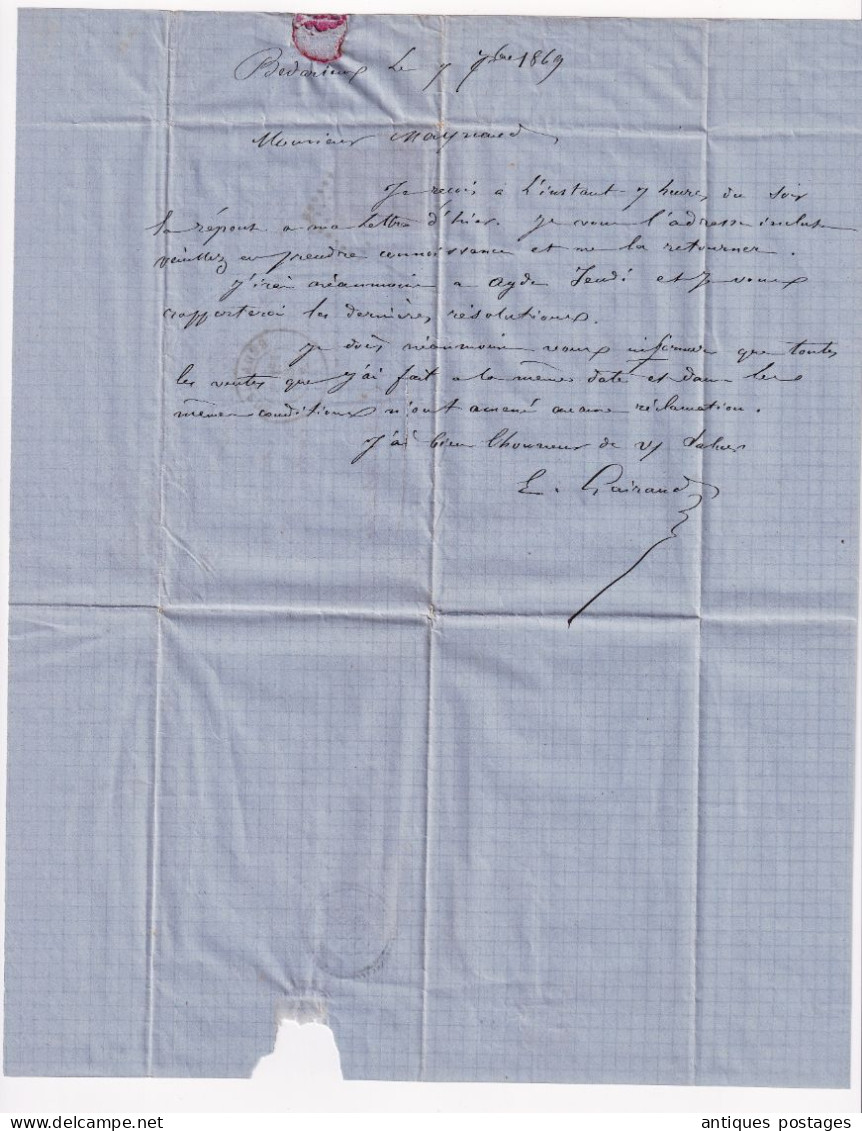 Bedarieux le 7 7bre 1869
Monsieur Maynard
Je reçois à l'instant 7 heures du soir
la réponse a ma lettre d'hier. Je vous l'adresse incluse
veuillez en prendre connaissance et me la retourner.
J'irai néanmoins a Agde Jeudi et Je vous
rapporterai les dernières résolutions.
Je dois néanmoins vous informer que toutes
les ventes que j'ai fait a la même date et dans les
mêmes conditions n'ont amené aucune réclamation.
J'ai bien l'honneur de vs saluer
E. Gairaud
antiques postages